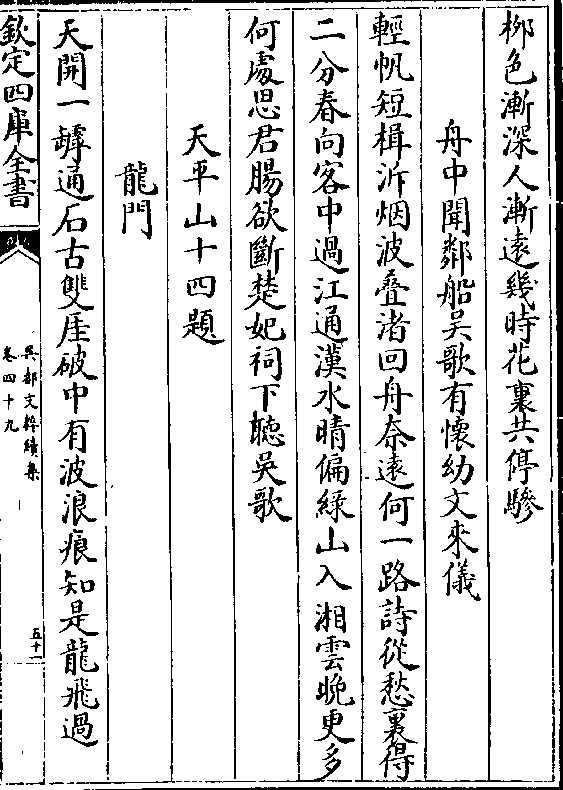 柳色漸深人漸遠幾時花裏共停驂
舟中聞鄰船吳歌有懷幼文來儀
輕帆短楫泝烟波叠渚回舟奈遠何一路詩從愁裏得
二分春向客中過江通漢水晴偏綠山入湘雲晚更多
何處思君腸欲斷楚妃祠下聽吳歌
天平山十四題
龍門
天開一罅通石古雙厓破中有波浪痕知是龍飛過
欽定四庫全書
吳都文粹續集
卷四十九
五十一